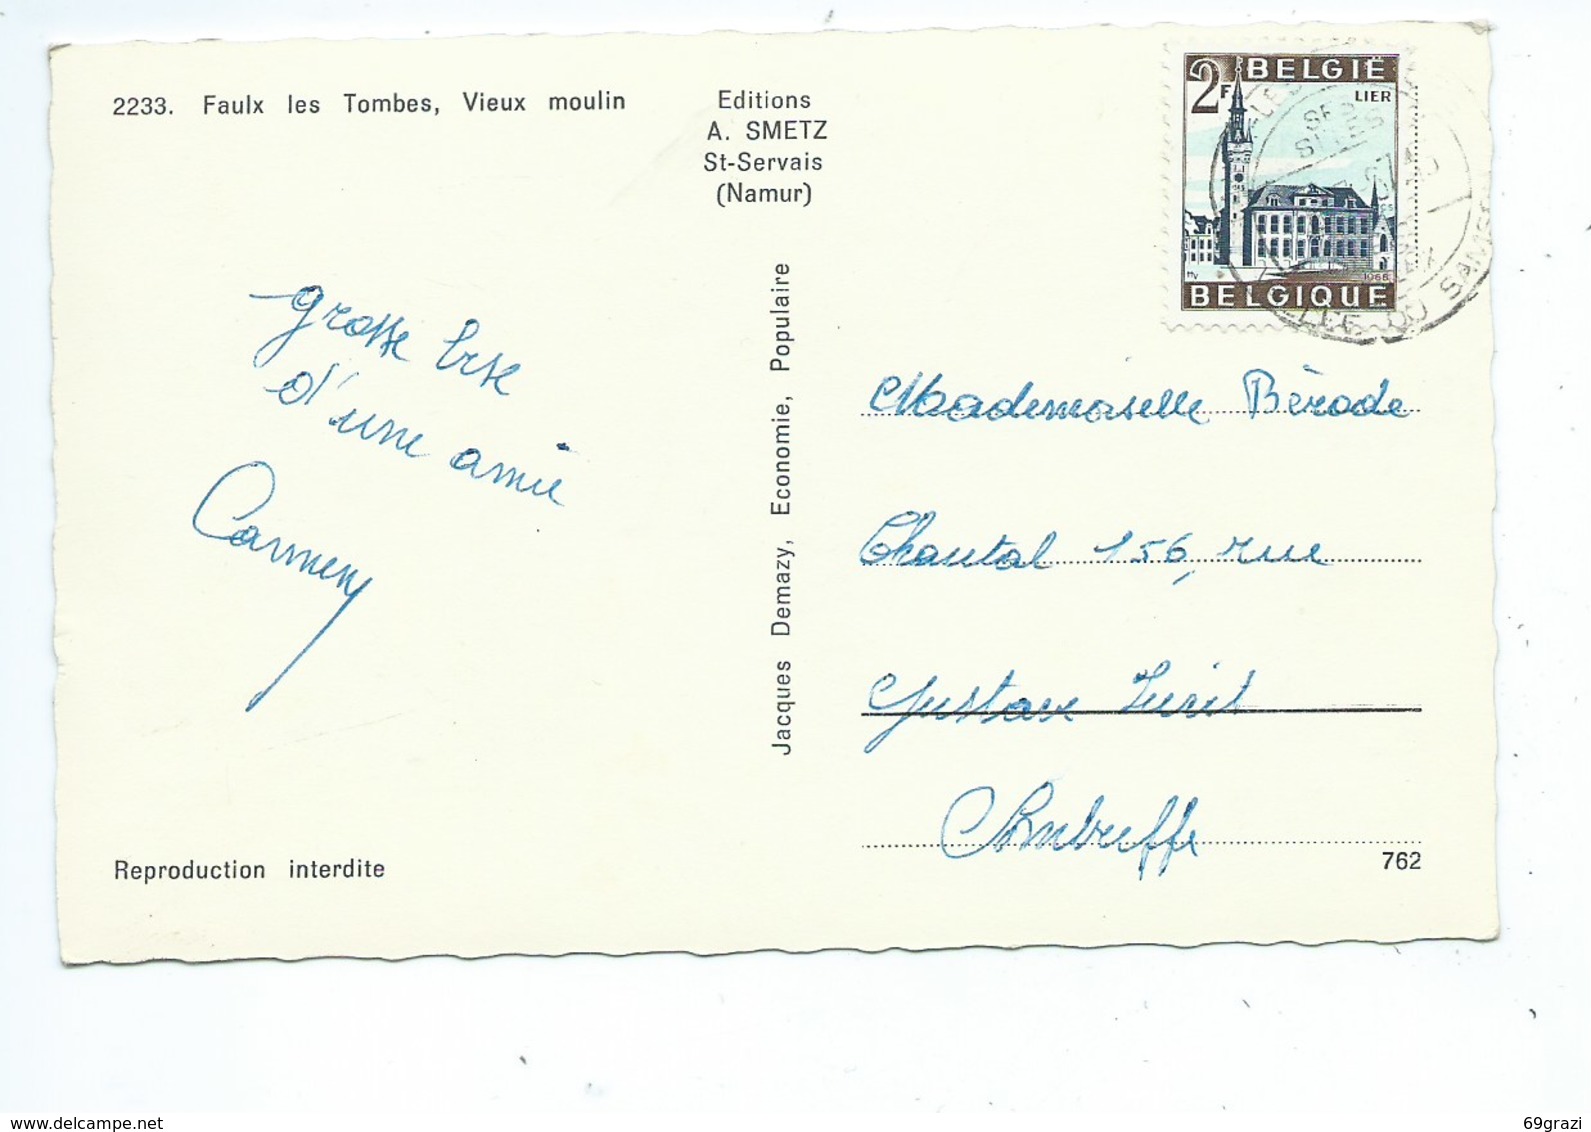 2233. Faulx les Tombes, Vieux moulin
Editions
A. SMETZ
St-Servais
(Namur)
2F BELGIË
LIER
HV 1966
BELGIQUE
grosse bise
d'une amie
Carmen
Jacques Demazy, Economie, Populaire
Mademoiselle Bérode
Chantal 156, rue
Gustave
Reproduction interdite
762
www.delcampe.net
69grazi